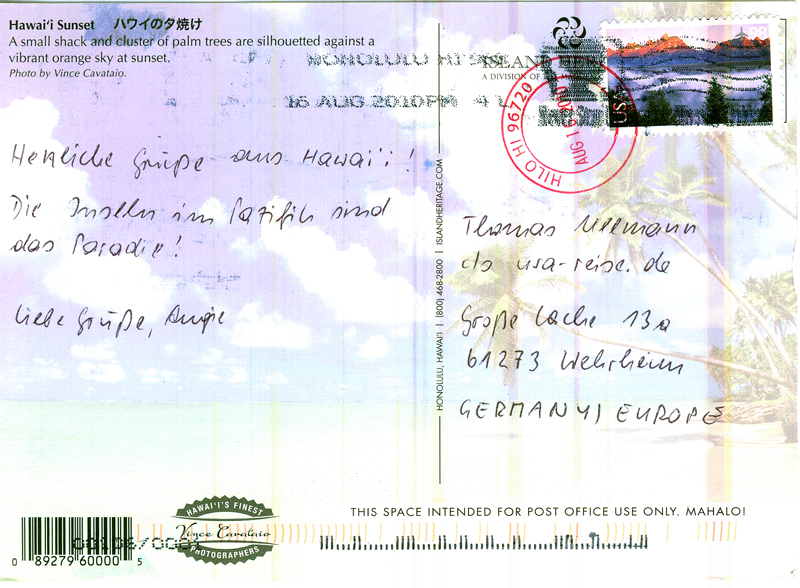 Hawai‘i Sunset ハワイの夕焼け
A small shack and cluster of palm trees are silhouetted against a
vibrant orange sky at sunset.
Photo by Vince Cavataio.
HONOLULU HI
16 AUG 2010 PM 4
ISLAND
A DIVISION OF
HILO HI 96720
AUG 1
USA
98
Herzliche Grüße aus Hawai'i!
Die Inseln im Pazifik sind
das Paradie!
Liebe Grüße, Angie
HONOLULU, HAWAI‘I | (800) 468-2800 | ISLANDHERITAGE.COM
Thomas
c/o usa-reise.de
Große Lache 13a
61273 Wehrheim
GERMANY/EUROPE
HAWAI‘I'S FINEST
Vince Cavataio
PHOTOGRAPHERS
THIS SPACE INTENDED FOR POST OFFICE USE ONLY. MAHALO!
0 89279 60000 5